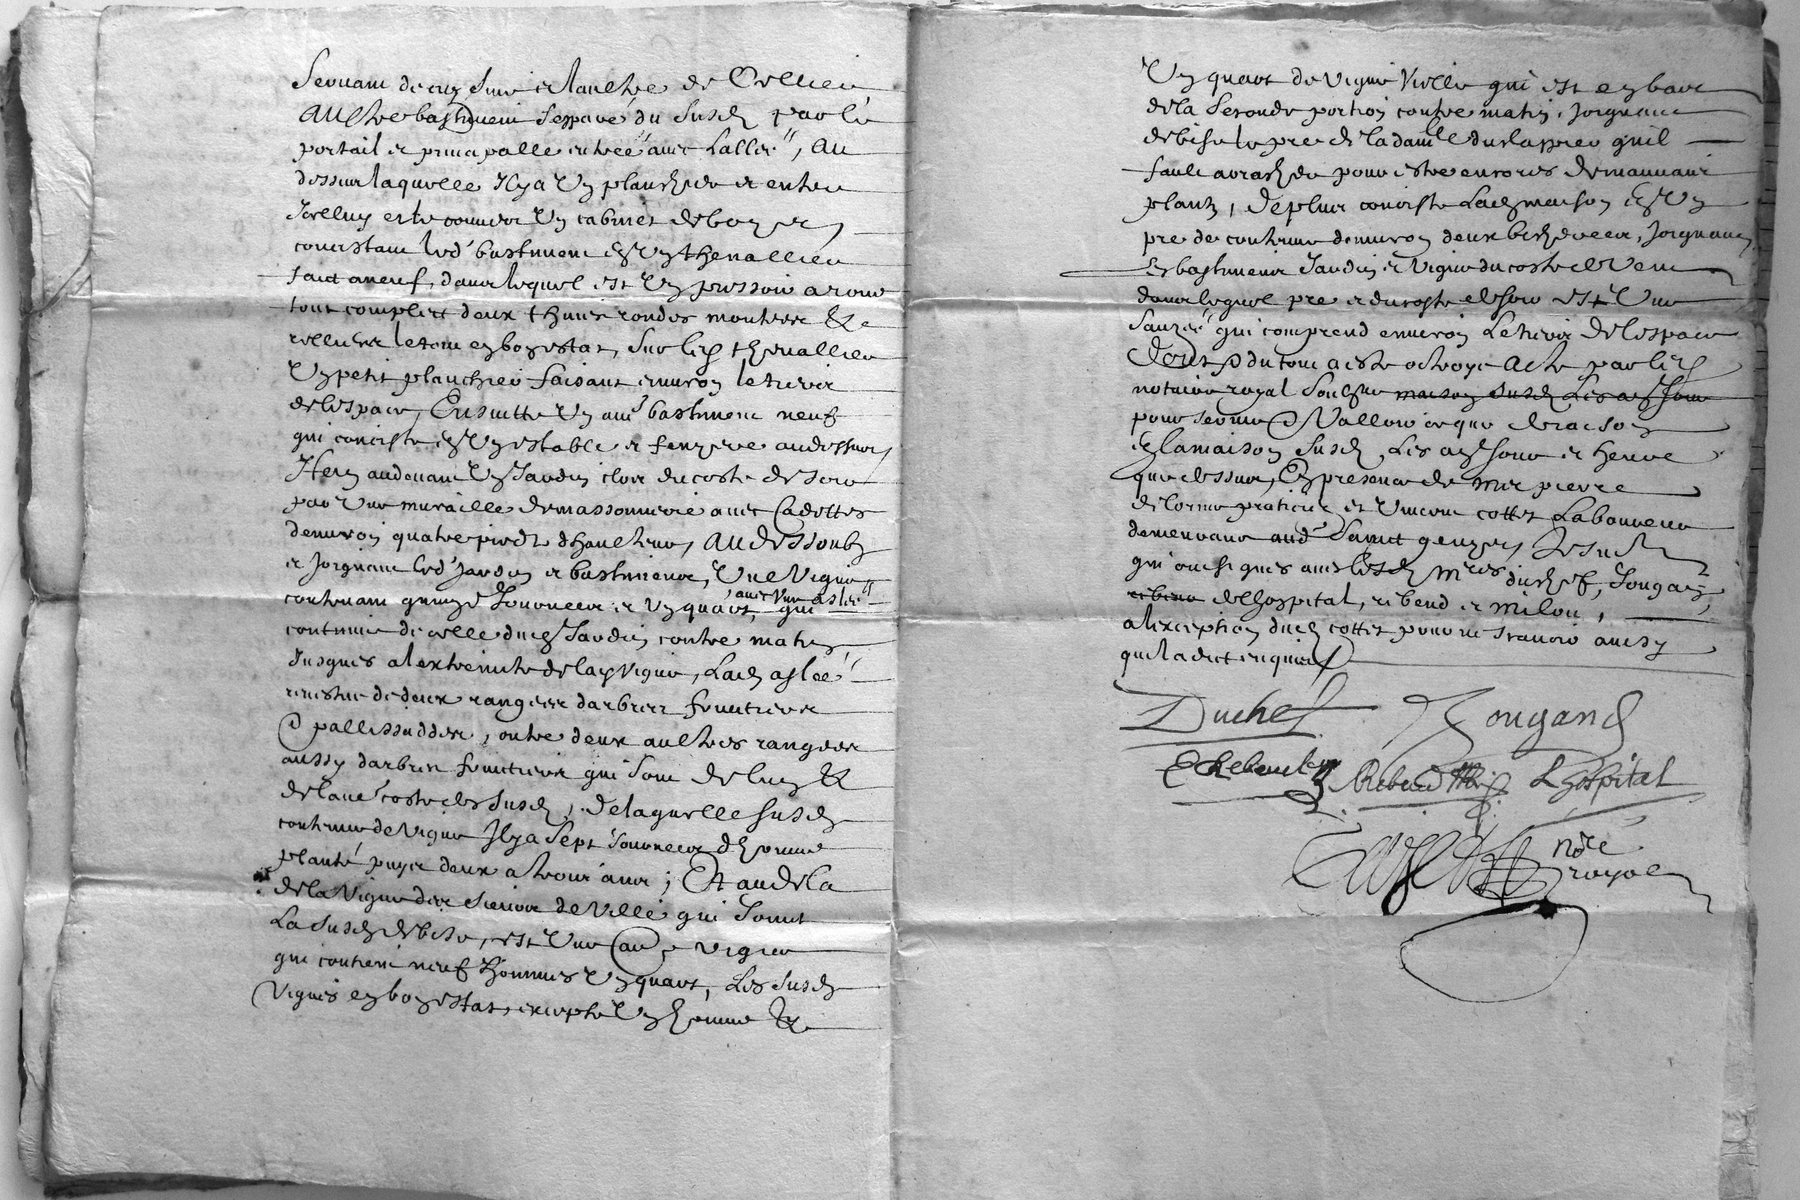 servant de cuysine et laultre de cellier
Aultre bastiment separé du susd par le
portail et principalle entrée avec l'allée, Au
dessus laquelle Il y a Un plancher et entre
Icelluy et le couvert Un cabinet de boys
consistant led bastiment en Un thenallier
faict a neuf, dans lequel est Un pressoir a roue
tout complect deux thines rondes montees &
relliees le tout en bon estat, sur led thenallier
Un petit plancher faisant environ le tier
de lespace, Ensuitte Un aue bastiment neuf
qui conciste en Un estable et fenyere au dessus
Item au devant Un Jardin clos du costé de soir
par Une muraille de massonnerie avec Cadettes
denviron quatre pieds d'haulteur, Au dessoubz
et Joignant led Jardin et bastiment, Une Vigne
avec Une aslée
contenant quinze Journees et Un quart, qui
continue de celle dud Jardin contre matin
Jusques a l'extremité de lad Vigne, Lad aslée
revestue de deux rangees d'arbres fruictiers
pallissaddes, oultre deux aultres rangees
aussy d'arbres fruictiers qui sont de lung &
de laue costé des susd, De laquelle susd
contenue de Vigne Il y a Sept Journees d'homme
planté puys deux a trois ans; Et au dela
de la Vigne des sieurs de Ville qui Joinct
La susd de bise, est Une aue vigne
qui contient neuf Hommes Un quart, Les susd
Vignes en bon estat, excepté Un homme &
Un quart de Vigne Vielle qui est en bas
de la seconde portion contre matin, Joignant
de bise le pre de la damlle qu'il
fault arracher pour estre encores de mauvais
plant, De plus conciste Lad maison En Un
pre de contenue denviron deux, Joignant
Les bastiments Jardin et Vigne du costé de Vent
dans lequel pre et du costé de soir est Une
sauzée qui comprend environ Le tier de lespace
Dont du tout a esté octroyé Acte par led
notaire royal soubsné maison susd Les an Jour
pour servir Valloir ce que de raison
En la maison susd, Les an Jour et heure
que dessus, En presence de Mre pierre
delorme praticien et Vincent cottet Laboureur
demeurant aud Sainct gengoux
qui ont signés avec lesd Mres duchef, Jougand
ribend de Lhospital, ribend et milou,
a lexception dud cottet pour ne sçavoir ainsy
quil a dict enquis
Duchef Jougand
Ribend Lhospital
nore
royal